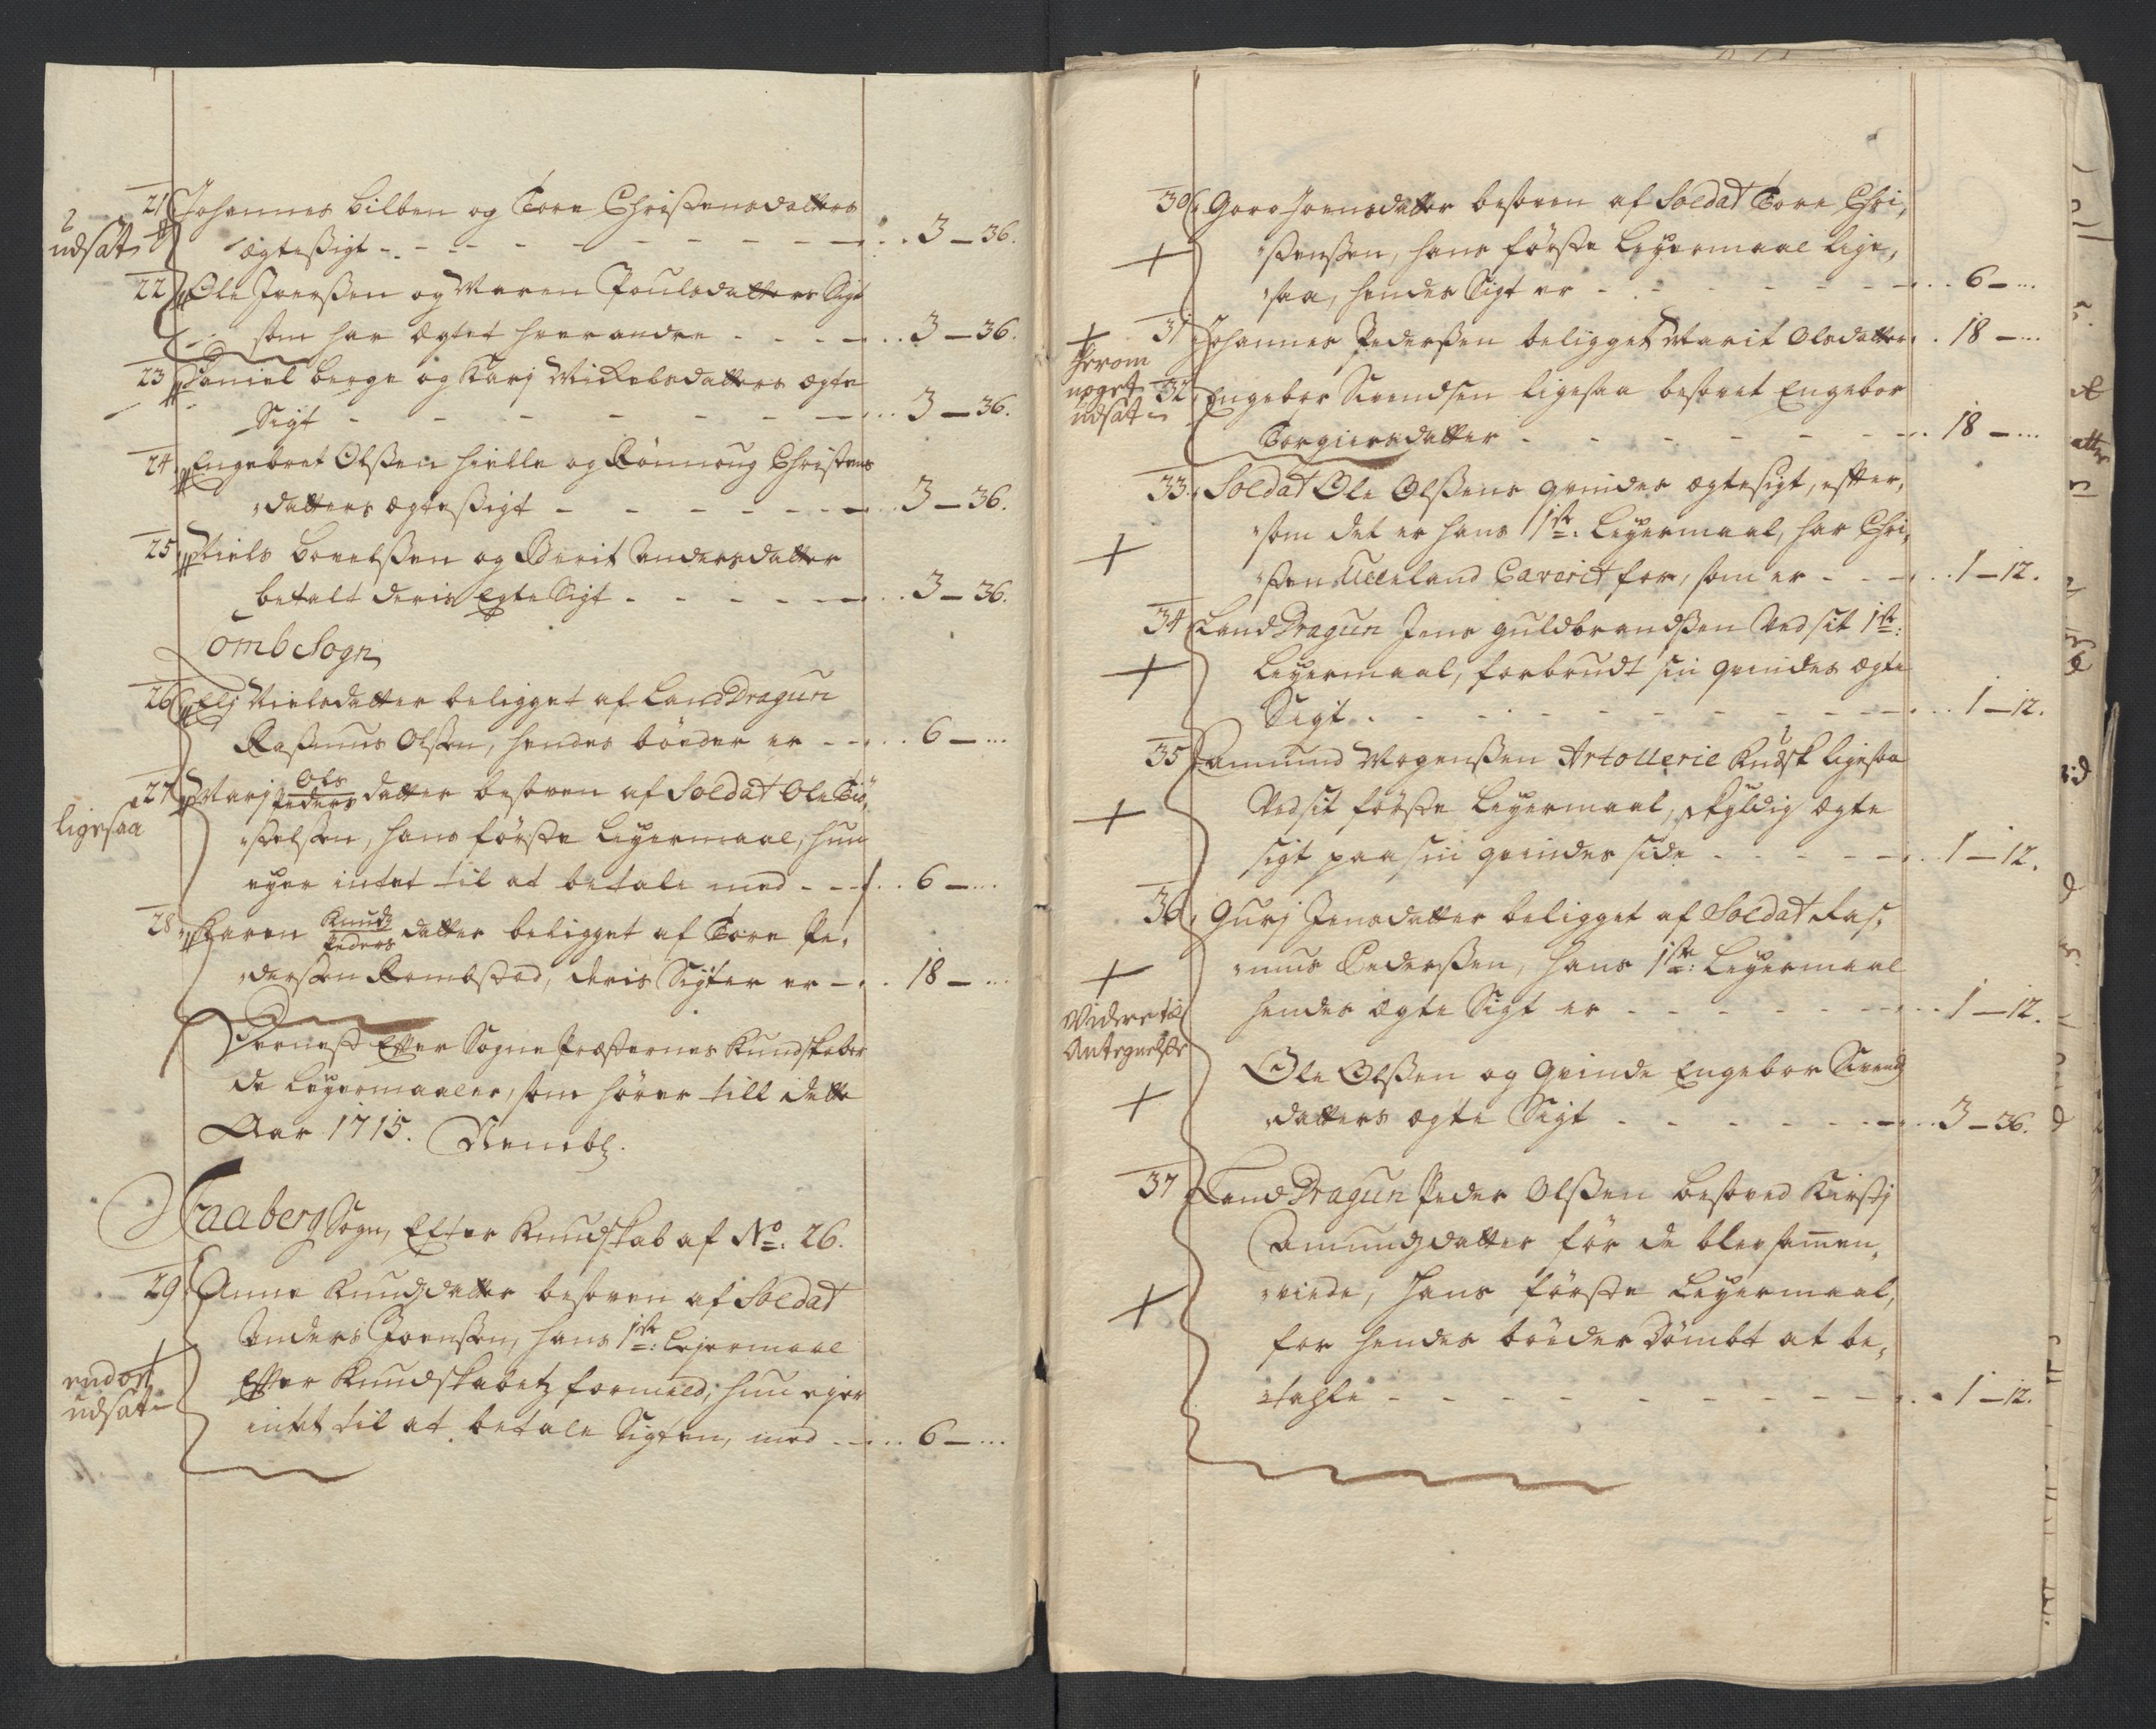 21 Johannes Bilben og Tore Christensdatters
2 udsat
ægtesigt - - - 3 - 36.
22 Ole Iversen og Maren Poulsdatters Sigt
som har ægtet hverandre - - - 3 - 36.
23 Daniel Berge og Karj Mickelsdatters ægte
Sigt - - - 3 - 36.
24. Engebret Olssen Hielle og Rönnoug Christens
datters ægtesigt - - - 3 - 36.
25. Niels Bovelssen og Berit Andersdatter
betalt deris Egte Sigt - - - 3 - 36.
Tomb Sogn
26 Elj Nielsdatter beligget af Land Dragun
Rasmus Olssen, hendes böeder er - - - 6 - ...
27. Marj Ols Peders datter besoven af Soldat Ole
ligesaa
hans förste Leyermaal, hun
eyer intet til at betale med - - - 6 - ...
28 Karen Knuds Peders datter beligget af Tore Pe,
derssen Rombstad, deris Sigter er - - 18 - ...
Dernest Efter Sogne Præsternes Kundskaber
de Leyermaaler, som hörer till dette
Aar 1715. Nembl.
Faaberg Sogn, Efter Kundskab af No. 26.
29. Anne Knudsdatter besoven af Soldat
Anders Joenssen, hans 1ste Lejermaal
Efter Kundskabetz formeld, hun ejer
endort udsat
intet til at betale Sigten, med - - - 6 - ...
30. Goro Joensdatter besoven af Soldat Tore Chri,
stenssen, hans förste Leyermaal lige,
saa, hendes Sigt er - - - 6 - ...
31 Johannes Pederssen beligget Marit Olsdatter. 18 - ...
herom noget udsat
32 Engebor Svendsen ligesaa besovet Engebor
Torgiersdatter - - - 18 - ...
33. Soldat Ole Olssens qvindes ægtesigt, efter,
som det er hans 1ste Leyermaal, har Chri,
sten Ulleland Caverit for, som er - - - 1 - 12.
34 Land Dragun Jens Guldbrandssen Ved sit 1ste
Leyermaal, forbrudt sin qvindes ægte
Sigt - - - 1 - 12.
35 Amund Mogenssen Artollerie Kudsk ligesaa
Ved sit förste Leyermaal, skyldig ægte
sigt paa sin qvindes side - - - 1 - 12.
36. Gurj Jensdatter beligget af Soldat Ras,
mus Pederssen, hans 1ste Leyermaal
hendes ægte Sigt er - - - 1 - 12.
Videre til Antegnelse
Ole Olssen og Qvinde Engebor Svends
datters ægte Sigt - - - 3 - 36.
37 Land Dragun Peder Olssen besoved Kirstj
Amundsdatter för de blev samen,
viede, hans förste Leyermaal,
for hendes böeder Dömbt at be,
tahle - - - 1 - 12.